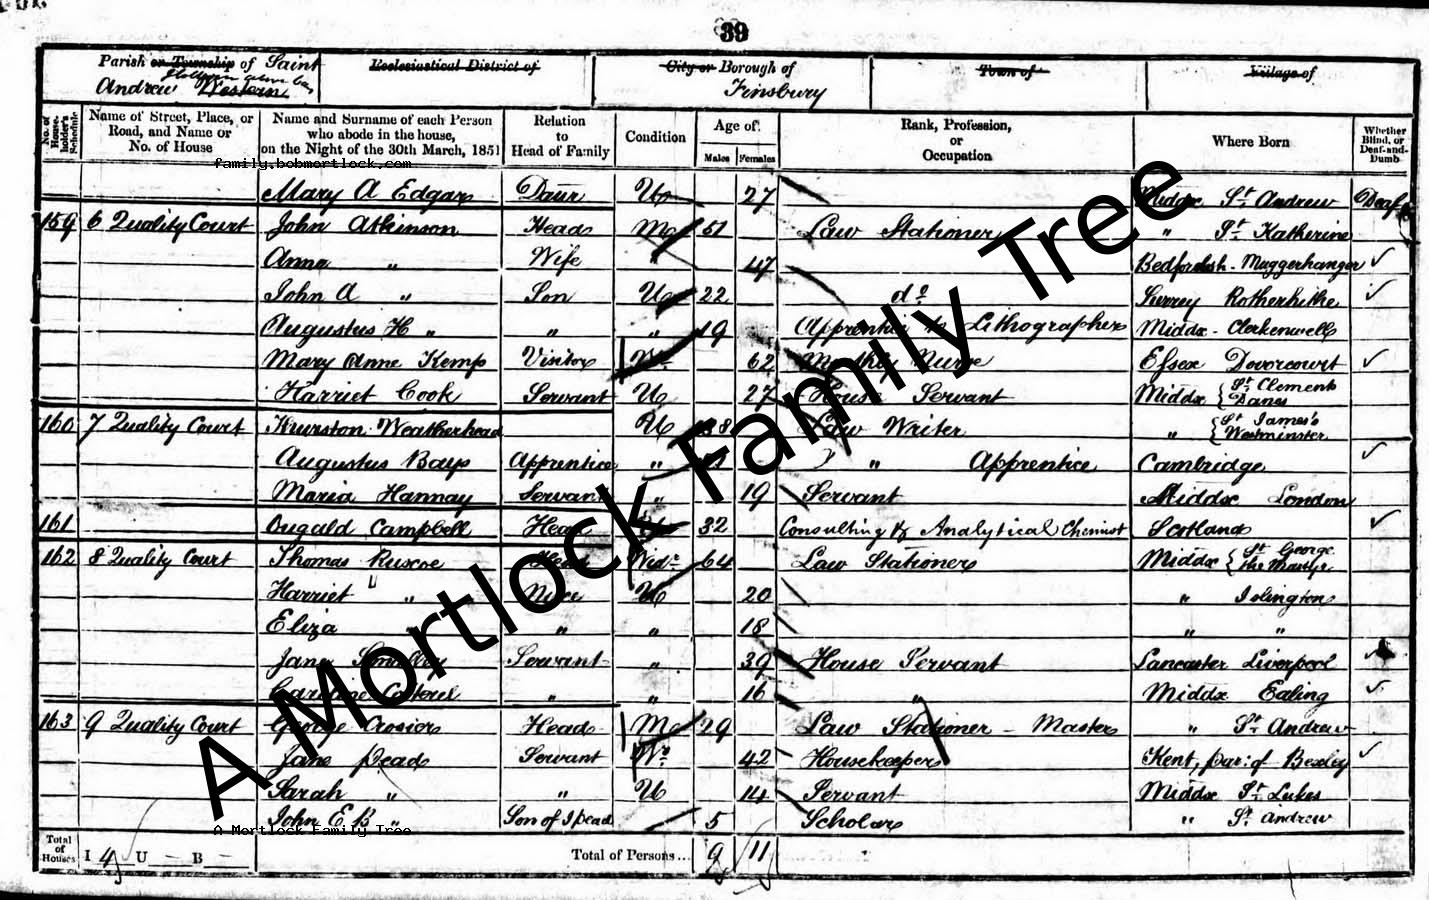 39
Parish or Township of Saint
Andrew Holborn above Bars Western
Ecclesiastical District of
City or Borough of
Finsbury
Town of
Village of
No. of House-holder's Schedule
Name of Street, Place, or Road, and Name or No. of House
Name and Surname of each Person who abode in the house, on the Night of the 30th March, 1851
Relation to Head of Family
Condition
Age of
Males Females
Rank, Profession, or Occupation
Where Born
Whether Blind, or Deaf-and-Dumb
family.bobmortlock.com
Mary A Edgar Daur U 27 Middx St Andrew Deaf
159 6 Quality Court John Atkinson Head M 51 Law Stationer " St Katherine
Anna " Wife 47 Bedfordsh - Muggerhanger
John A " Son U 22 do Surrey Rotherhithe
Augustus H " " " 19 Apprentice to Lithographer Middx - Clerkenwell
Mary Anne Kemp Visitor W 62 Monthly Nurse Essex Dovorcourt
Harriet Cook Servant U 27 House Servant Middx { St Clement Danes
160 7 Quality Court Weatherhead U 38 Law Writer " { St James's Westminster
Augustus Bays Apprentice " " Apprentice Cambridge
Maria Hannay Servant " 19 Servant Middx London
161 Dugald Campbell Head U 32 Consulting & Analytical Chemist Scotland
162 8 Quality Court Thomas Ruscoe Head Widr 64 Law Stationer Middx { St George the Martyr
Harriet " Niece U 20 " Islington
Eliza " " " 18 " "
Jane Servant " 39 House Servant Lancaster Liverpool
Caroline " " 16 " Middx Ealing
163 9 Quality Court George Crosier Head M 29 Law Stationer - Master " St Andrew
Jane Pead Servant W 42 Housekeeper Kent, par: of Bexley
Sarah " " U 14 Servant Middx St Lukes
John E B " Son of J Pead 5 Scholar " St Andrew
A Mortlock Family Tree
Total of Houses I 4 U - B - Total of Persons... 9 11
A Mortlock Family Tree